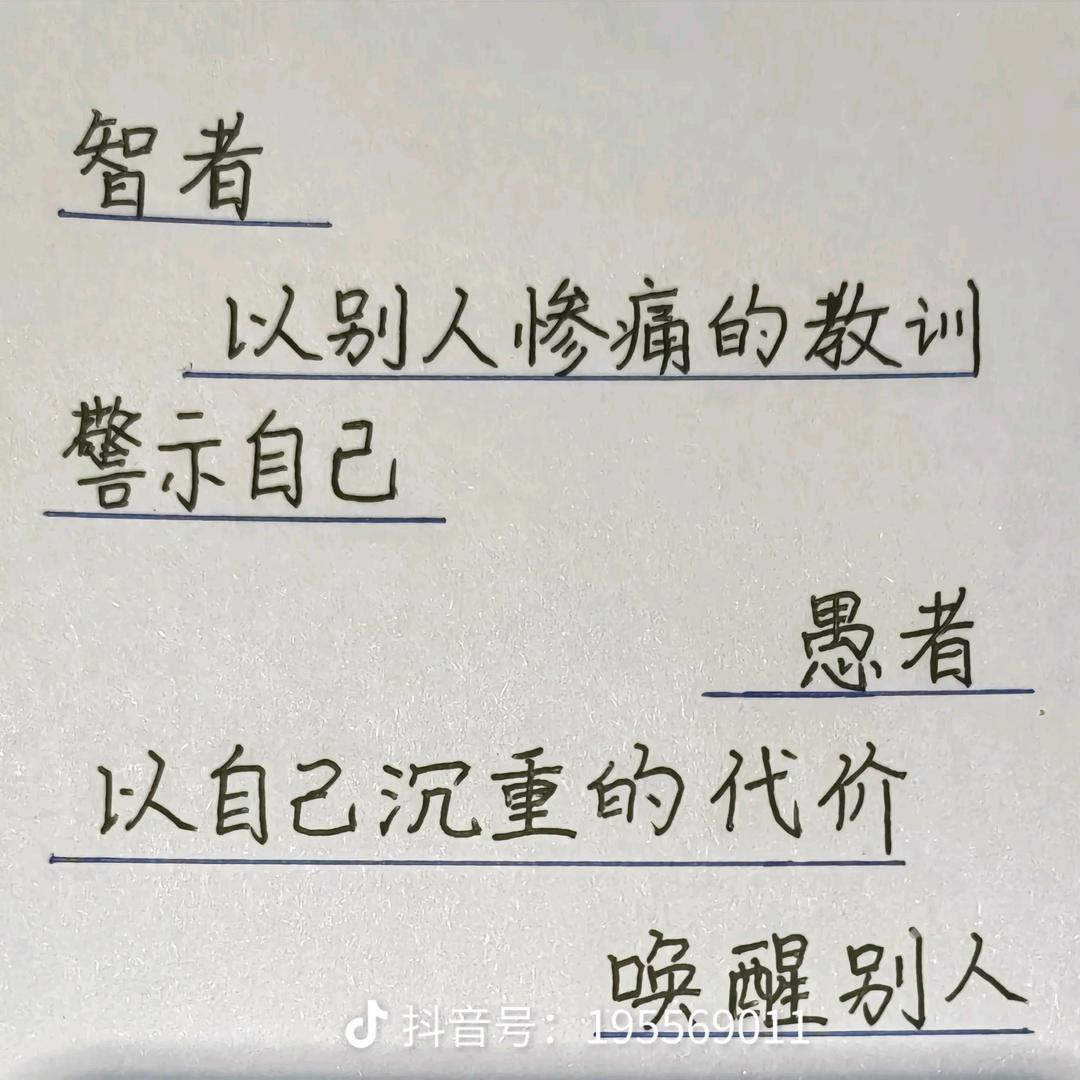 智者
以别人惨痛的教训
警示自己
愚者
以自己沉重的代价
唤醒别人
抖音号：195569011